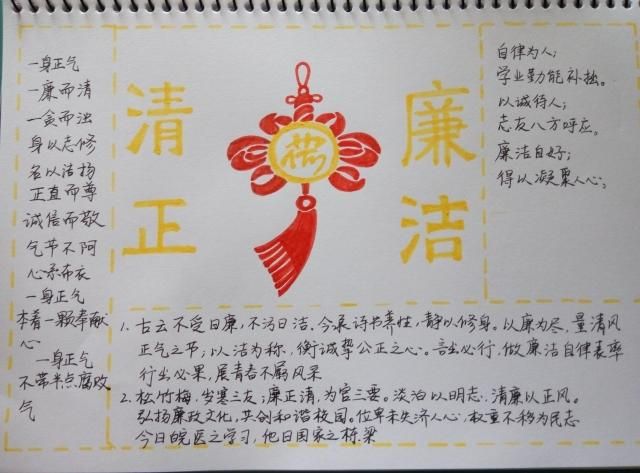 一身正气
一廉而清
一贪而浊
身以志修
名以洁扬
正直而尊
诚信而敬
气节不阿
心系布衣
一身正气
本着一颗奉献
心
一身正气
不带半点腐败
气
清正
廉洁
自律为人；
学业勤能补拙。
以诚待人；
志友八方呼应。
廉洁自好；
得以凝聚人心。
1. 古云不受曰廉，不污曰洁。今承诗书养性，静以修身。以廉为尽，量清风
正气之节；以洁为称，衡诚挚公正之心。言出必行，做廉洁自律表率
行出必果，展青春不屈风采
2. 松竹梅，岁寒三友；廉正清，为官三要。淡泊以明志，清廉以正风。
弘扬廉政文化，共创和谐校园。位卑未失济人心，权重不移为民志
今日皖医之学习，他日国家之栋梁